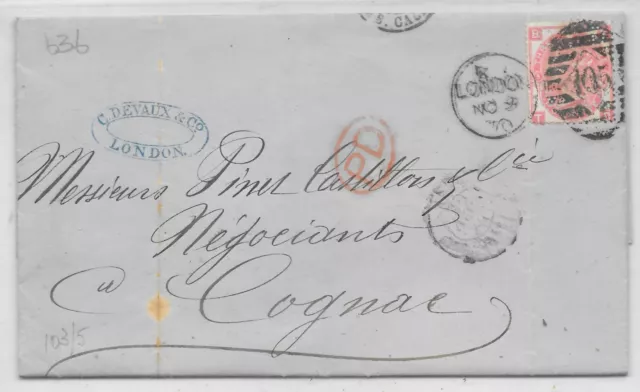 636
S. CAL
C. DEVAUX & Co
LONDON.
LONDON
NO 9
70
105
PD
Messieurs Pinet Castillon & Cie
Négociants
à Cognac
103/5